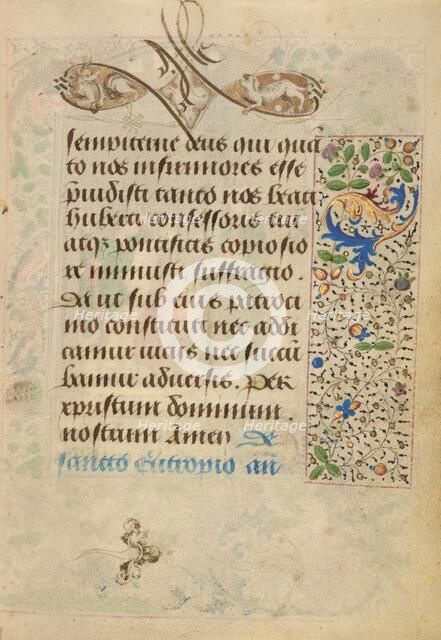 sempiterne deus qui qua(n)
to nos infirmiores esse
p(re)uidisti tanto nos beati
huberti confessoris tui
atq(ue) pontificis copiosio
re muniisti suffragio.
Da ut sub eius patroci
nio constituti nec addi
camur malis nec succu(m)
bamur aduersis. Per
xpristum dominum
nostrum Amen De
sancto Eutropio an̄
Heritage
Heritage
Heritage
Heritage
Heritage
Heritage